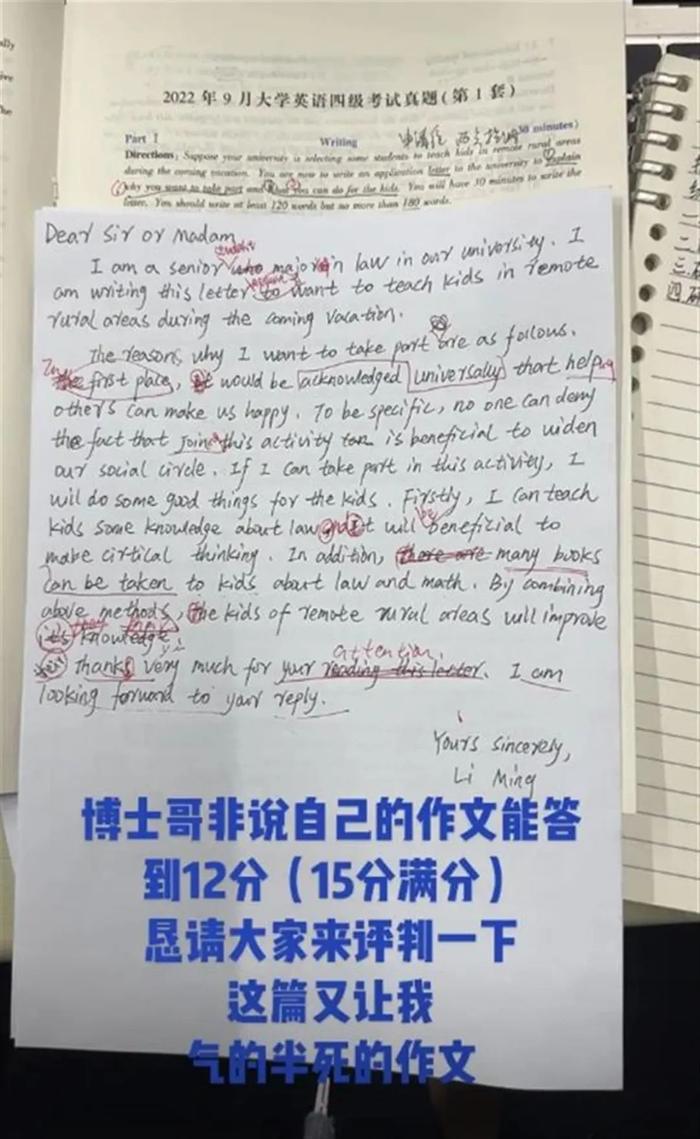 2022年9月大学英语四级考试真题(第1套)
Part I Writing 申请信 (30 minutes)
Directions: Suppose your university is selecting some students to teach kids in remote rural areas
during the coming vacation. You are now to write an application letter to the university to explain
why you want to take part and what you can do for the kids. You will have 30 minutes to write the
letter. You should write at least 120 words but no more than 180 words.
Dear Sir or Madam
student
I am a senior who major in law in our university. I
am writing this letter to want to teach kids in remote
rural areas during the coming vacation.
The reasons why I want to take part are as follows.
In the first place, it would be acknowledged universally that helping
others can make us happy. To be specific, no one can deny
the fact that join this activity can is beneficial to widen
our social circle. If I can take part in this activity, I
will do some good things for the kids. Firstly, I can teach
be
kids some knowledge about law and it will beneficial to
make cirtical thinking. In addition, there are many books
can be taken to kids about law and math. By combining
above methods, the kids of remote rural areas will improve
their
it's knowledge.
attention.
Thanks very much for your reading this letter. I am
looking forward to your reply.
Yours sincerely,
Li Ming
博士哥非说自己的作文能答
到12分(15分满分)
恳请大家来评判一下
这篇又让我
气的半死的作文
三
四